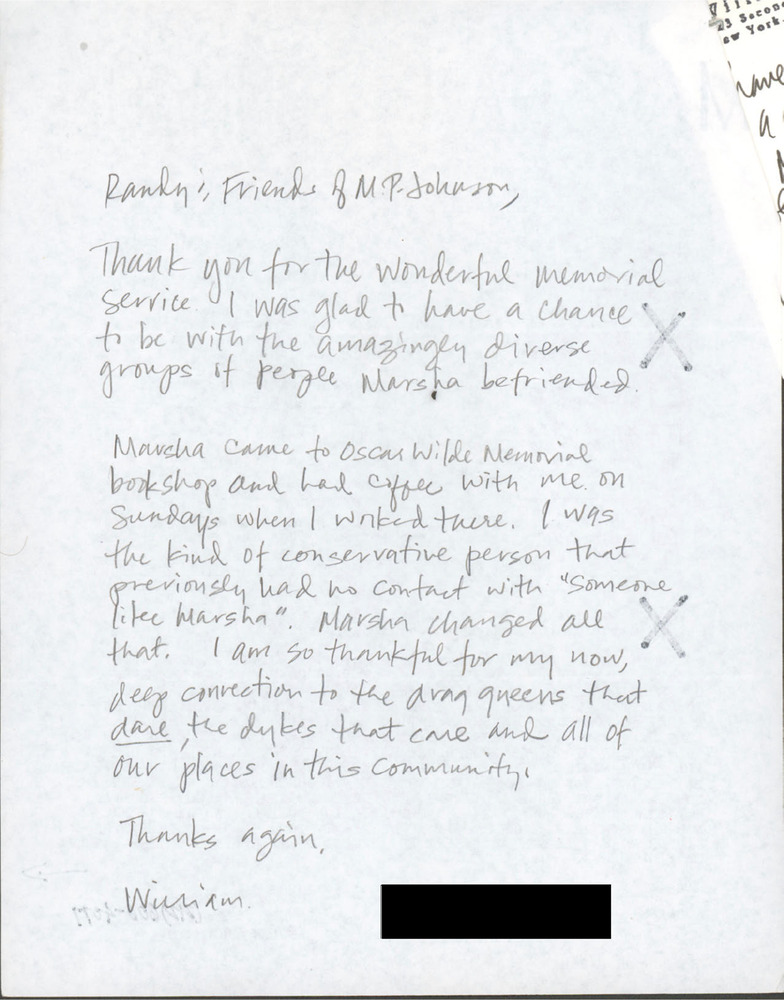 Randy & Friends of M.P. Johnson,
Thank you for the wonderful memorial
service. I was glad to have a chance
to be with the amazingley diverse
groups of people Marsha befriended.
Marsha came to Oscar Wilde Memorial
bookshop and had coffee with me on
Sundays when I worked there. I was
the kind of conservative person that
previously had no contact with "someone
like Marsha". Marsha changed all
that. I am so thankful for my now,
deep connection to the drag queens that
dare, the dykes that care and all of
our places in this community.
Thanks again,
William.
23 Second
New York
have
a